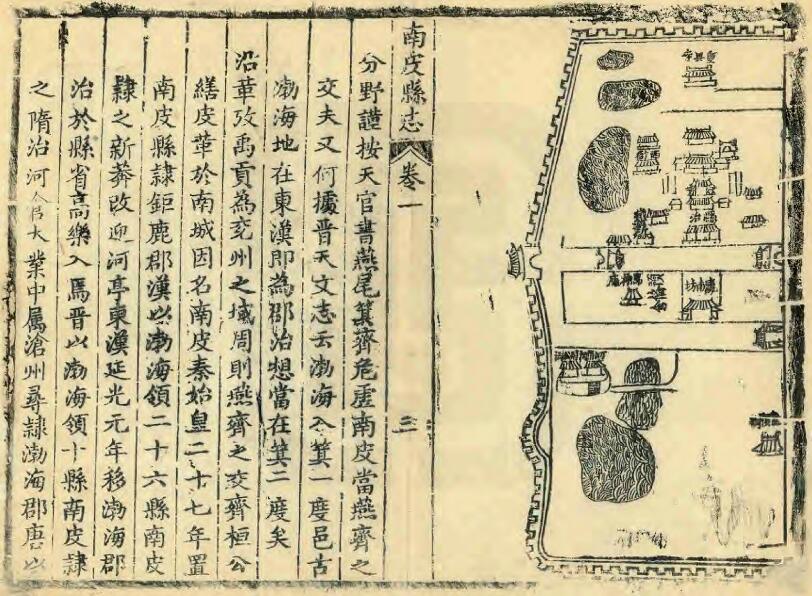 縣治
南皮縣志
卷一
三
分野謹按天官書燕尾箕齊危虛南皮當燕齊之
交夫又何據晉天文志云渤海入箕一度邑古
渤海地在東漢即為郡治想當在箕二度矣
沿革攷禹貢為兗州之域周則燕齊之交齊桓公
繕皮革於南城因名南皮秦始皇二十七年置
南皮縣隸鉅鹿郡漢以渤海領二十六縣南皮
隸之新莽改迎河亭東漢延光元年移渤海郡
治於縣省高樂入焉晉以渤海領十縣南皮隸
之隋治河大業中属滄州尋隸渤海郡唐以